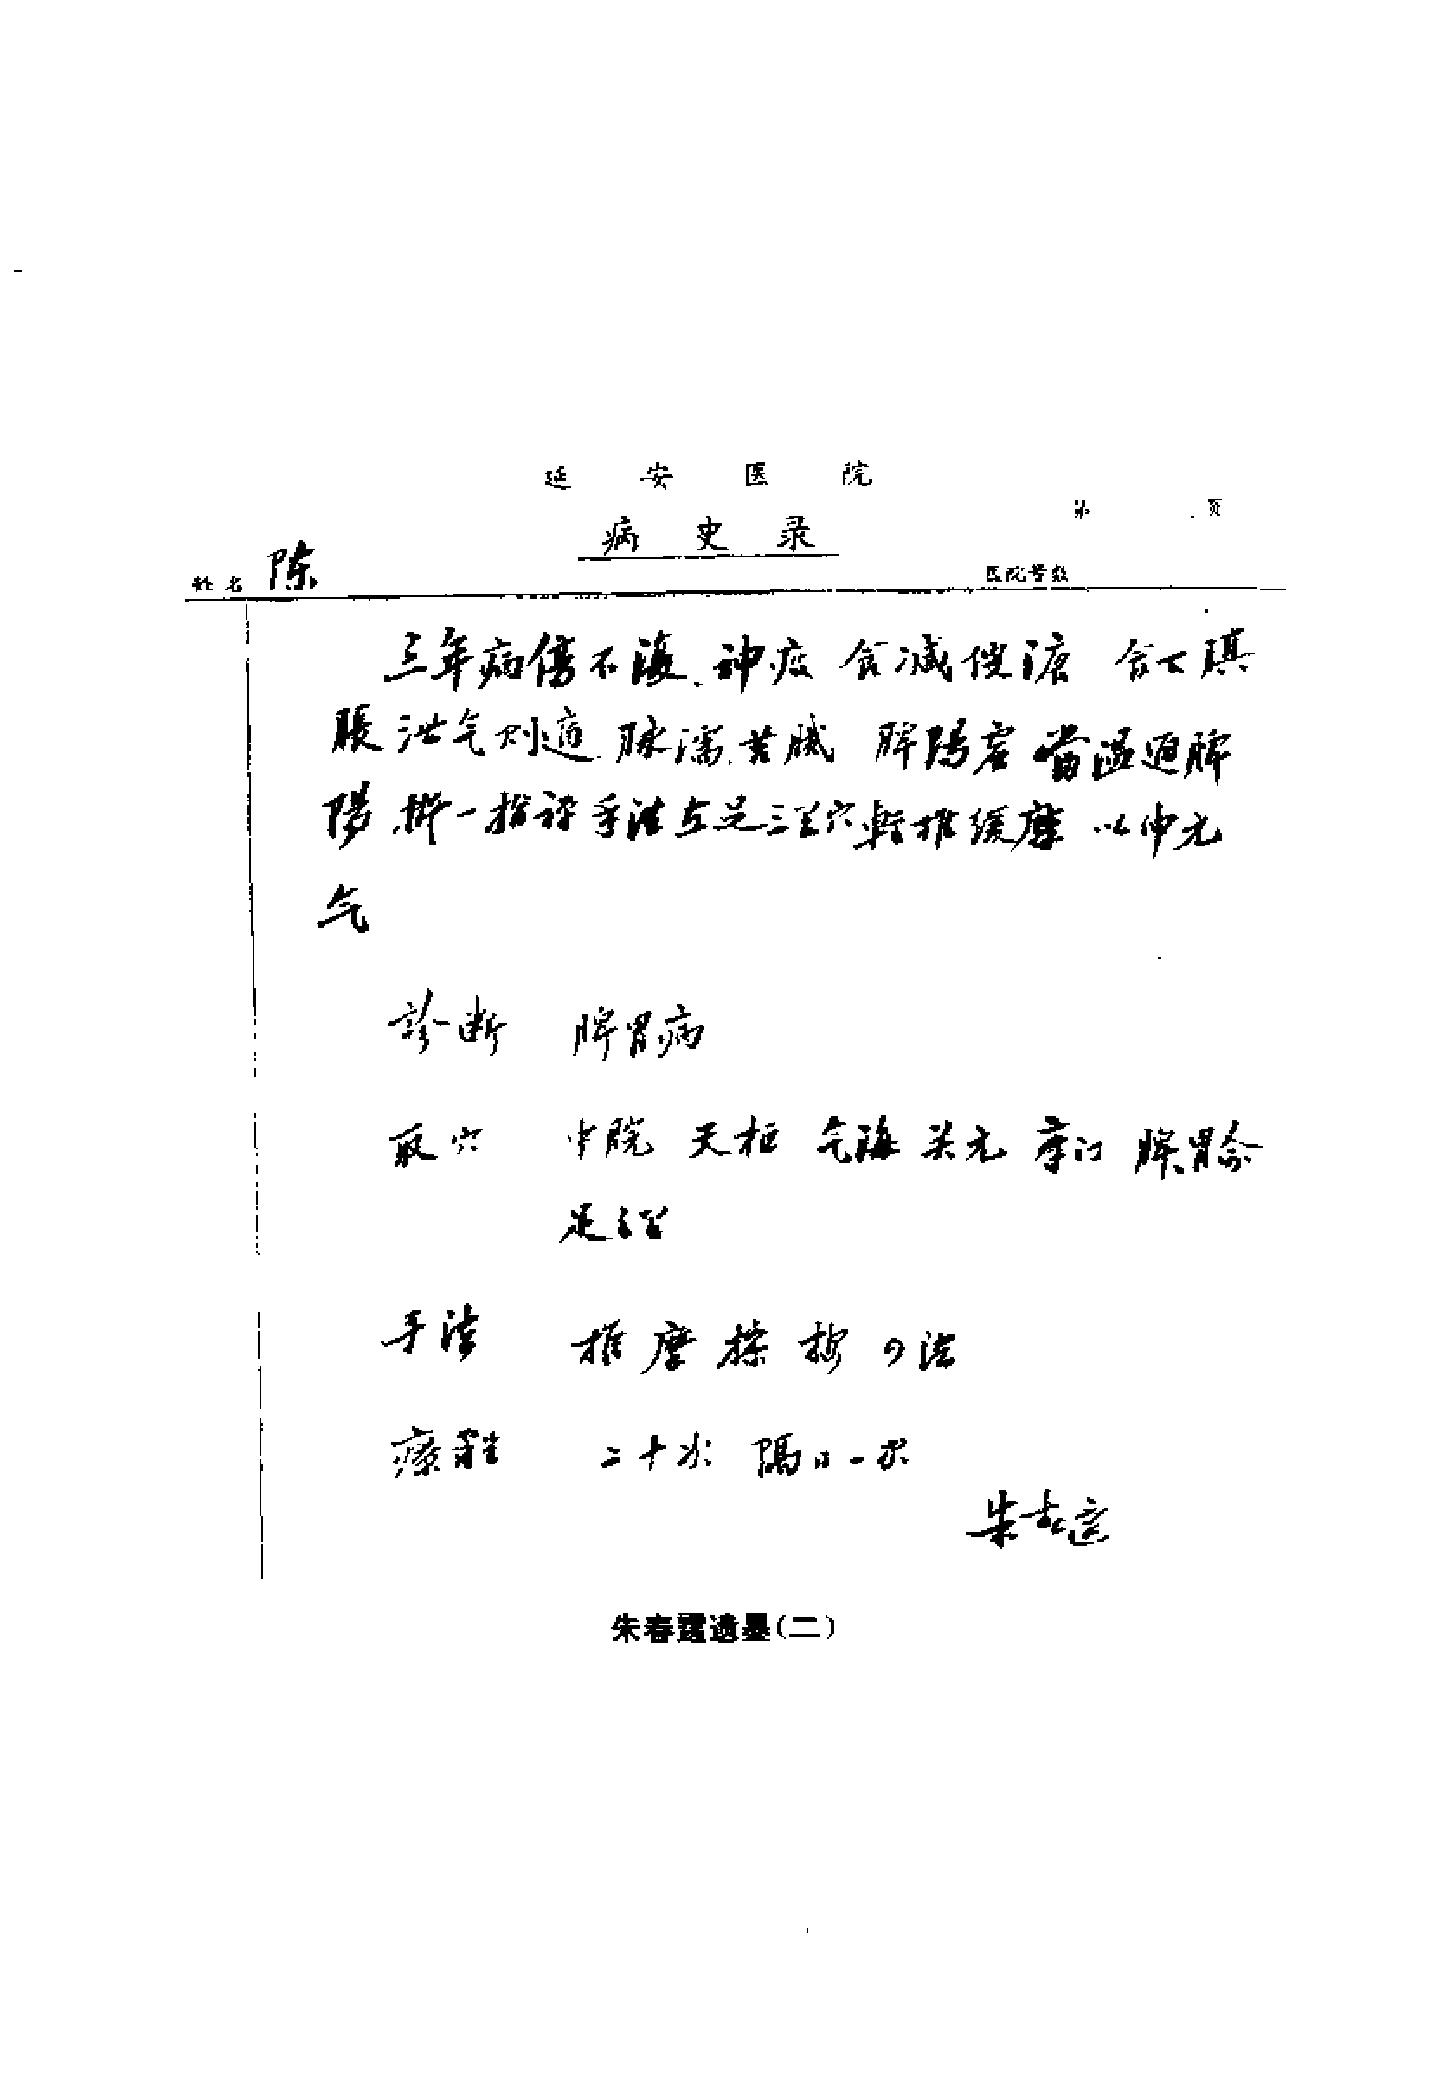 延安医院
第 页
病史录
姓名 陈 医院号数
三年病伤不复.神疲 食减便溏 食上腹
脹 泄气则适.脉濡.苔腻 脾陽虚 當温通脾
陽.擬一指禅手法 足三里穴 輕推缓摩 以伸元
气
診断 脾胃病
取穴 中脘 天枢 气海 关元 章门 脾胃俞
足三里
手法 推 摩 揉 按 四法
療程 二十次 隔日一次
朱春霆
朱春霆遗墨(二)